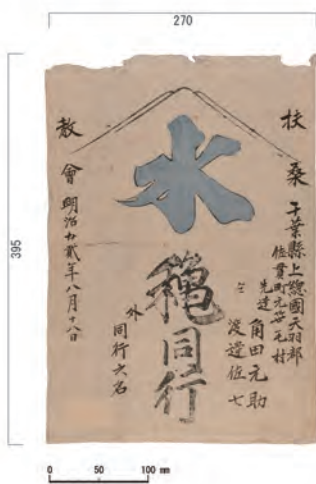 270
395
扶桑
千葉縣上總國天羽郡
佐貫町元笹毛村
先達 角田元助
仝 渡邊佐七
水
穐同行
外
同行六名
教會
明治廿貳年八月十八日
0 50 100 mm